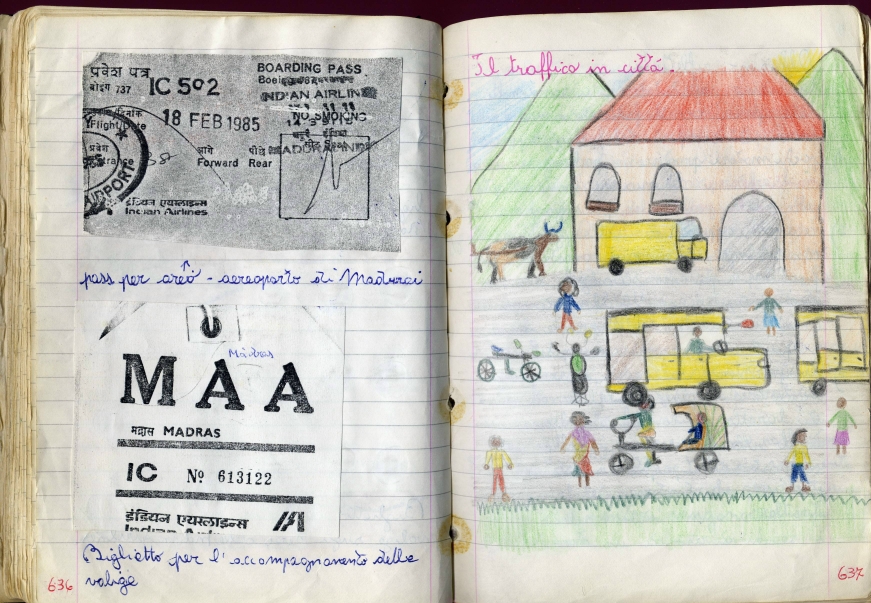 प्रवेश पत्र IC 502
बोइंग 737
18 FEB 1985
Flight/Date
प्रवेश
Entrance
38
आगे
Forward
पीछे
Rear
BOARDING PASS
INDIAN AIRLINES
NO SMOKING
AIRPORT
इंडियन एयरलाइन्स
Indian Airlines
pass per areo - aereoporto di Madurai
Madras
MAA
मद्रास MADRAS
IC No 613122
इंडियन एयरलाइन्स
Indian Airlines
Biglietto per l'accompagnamento delle
valige
636
Il traffico in città.
637